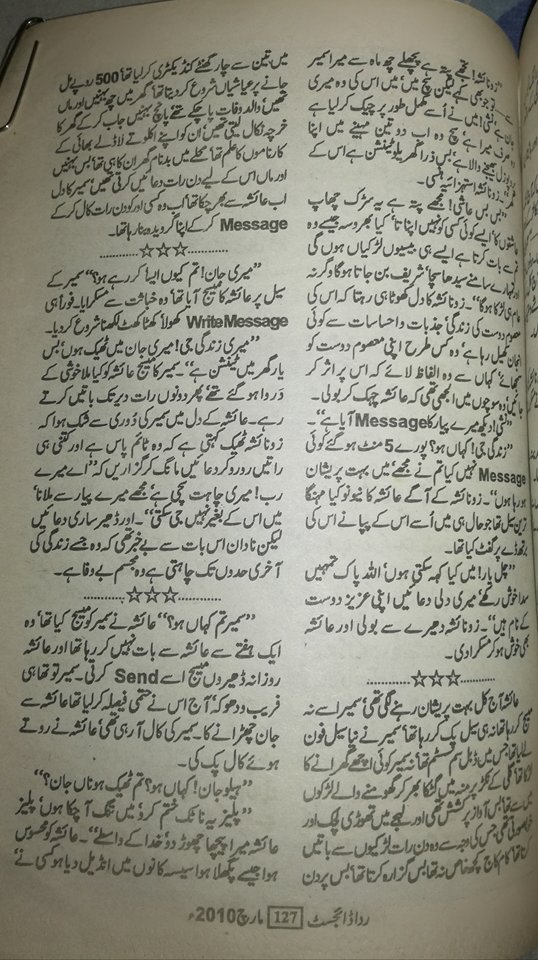 ”زونائشہ! تجھے پتہ ہے پچھلے چھ ماہ سے میرا سمیر
سے تو جو بھی ہے لیکن سچ میں‘ میں اس کی وہ میری
جان ہے‘ لشی! میں نے اسے مکمل طور پر چیک کرلیا ہے
وہ صرف میرا ہے‘ سچ وہ اب دو تین مہینے میں اپنا
پرپوزل بھیجنے والا ہے‘ بس ذرا گھریلو ٹینشن ہے اس کے
زونائشہ استہزائیہ ہنسی۔
”بس بس عاشی! مجھے پتہ ہے یہ سڑک چھاپ
عاشقوں کا‘ ایسے کوئی کسی کو نہیں اپناتا‘ کیا بھروسہ جیسے وہ
تم سے بات کرتا ہے ایسے ہی بیسیوں لڑکیاں ہوں گی
اور تمہارے سامنے سیدھا سچا‘ شریف بن جاتا ہوگا ورنہ
عام ہی لڑکا ہوگا“۔ زونائشہ کا دل کھونا ہی رہتا کہ اس کی
معصوم دوست کی زندگی‘ جذبات و احساسات سے کوئی
انجان کھیل رہا ہے‘ وہ کس طرح اپنی معصوم دوست کو
سمجھائے‘ کہاں سے وہ الفاظ لائے کہ اس پر اثر کر
جائیں‘ وہ سوچوں میں الجھی تھی کہ عائشہ چہک کر بولی۔
”لشی! دیکھ میرے پیار کا Message آیا ہے“۔
”زندگی جی! کہاں ہو؟ پورے 5 منٹ ہوگئے کوئی
Message نہیں کیا تم نے مجھے‘ میں بہت پریشان
ہو رہا ہوں“۔ زونائشہ کے آگے عائشہ کا نیو نو کیا مہنگا
ترین سیل تھا جو حال ہی میں اُسے اس کے پاپا نے اس کی
برتھ ڈے پر گفٹ کیا تھا۔
”چل یار! میں کیا کہہ سکتی ہوں‘ اللہ پاک تمہیں
سدا خوش رکھے‘ میری دلی دعائیں اپنی عزیز دوست
کے نام ہیں“۔ زونائشہ دھیرے سے بولی اور عائشہ
بھی خوش ہو کر مسکرا دی۔
............☆☆☆............
عائشہ آج کل بہت پریشان رہنے لگی تھی‘ سمیر اسے نہ
میسج کر رہا تھا نہ ہی سیل پک کر رہا تھا‘ سمیر نے نیا سیل فون
لے لیا تھا جس میں ڈبل سم سسٹم تھا‘ نہ سمیر کوئی اچھے گھرانے کا
لڑکا تھا‘ گلی کے نکڑ پر منہ میں گٹکا بھر کر گھومنے والے لڑکوں
میں سے تھا‘ بس آواز پُرکشش تھی اور لہجے میں تھوڑی لچک اور
خوبصورتی تھی جس کی وجہ سے وہ دن رات لڑکیوں سے باتیں
کرتا تھا‘ کام کاج کچھ خاص نہ تھا‘ بس گزارہ کرتا تھا‘ بس پر دن
میں تین سے چار گھنٹے کنڈیکٹری کرلیا تھا‘ 500 روپے مل
جانے پر عیاشیاں شروع کر دیتا تھا‘ گھر میں چھ بہنیں اور ماں
تھیں‘ والد وفات پا چکے تھے‘ پانچ بہنیں جاب کر کے گھر کا
خرچہ نکال لیتی تھیں‘ اُن کو اپنے اکلوتے لاڈلے بھائی کے
کارناموں کا علم تھا‘ محلے میں بدنام گھر ان کا ہی تھا‘ بس بہنیں
اور ماں اس کے لیے دن رات دعائیں کرتی تھیں‘ سمیر کا دل
اب عائشہ سے بھر چکا تھا‘ اب وہ کسی اور کو دن رات کال کر کے
Message کر کے اپنا گرویدہ بنا رہا تھا۔
............☆☆☆............
”میری جان! تم کیوں ایسا کر رہے ہو؟“ سمیر کے
سیل پر عائشہ کا میسج آیا تھا‘ وہ خباثت سے مسکرایا۔ فوراً ہی
Write Message کھولا‘ کھٹا کھٹ لکھنا شروع کر دیا۔
”میری زندگی جی! میری جان میں ٹھیک ہوں‘ بس
یار گھر میں ٹینشن ہے“۔ سمیر کا میسج عائشہ کو کیا ملا خوشی کے
در وا ہوگئے تھے‘ پھر دونوں رات دیر تک باتیں کرتے
رہے۔ عائشہ کے دل میں سمیر کی دُوری سے شک ہوا کہ
زونائشہ ٹھیک کہتی ہے کہ وہ ٹائم پاس ہے اور کتنی ہی
راتیں رو رو کر دعائیں مانگ کر گزاریں کہ ”اے میرے
رب! میری چاہت سچی ہے‘ مجھے میرے پیار سے ملانا‘
میں اس کے بغیر نہیں جی سکتی“۔ اور ڈھیر ساری دعائیں
لیکن نادان اس بات سے بے خبر تھی کہ وہ جسے زندگی کی
آخری حدوں تک چاہتی ہے وہ مجسم بے وفا ہے۔
............☆☆☆............
”سمیر تم کہاں ہو؟“ عائشہ نے سمیر کو میسج کیا تھا‘ وہ
ایک ہفتے سے عائشہ سے بات نہیں کر رہا تھا اور عائشہ
روزانہ ڈھیروں میسج اسے Send کرتی۔ سمیر تو تھا ہی
فریب و دھوکہ‘ آج اس نے حتمی فیصلہ کرلیا تھا عائشہ سے
جان چھڑانے کا۔ سمیر کی کال آ رہی تھی‘ عائشہ نے روتے
ہوئے کال پک کی۔
”ہیلو جان! کہاں ہو؟ تم ٹھیک ہو ناں جان؟“
”پلیز یہ ناٹک ختم کرو‘ میں تنگ آ چکا ہوں‘ پلیز
عائشہ میرا پیچھا چھوڑ دو‘ خدا کے واسطے“۔ عائشہ کو محسوس
ہوا جیسے پگھلا ہوا سیسہ کانوں میں انڈیل دیا ہو کسی نے‘
ردا ڈائجسٹ 127 مارچ 2010ء